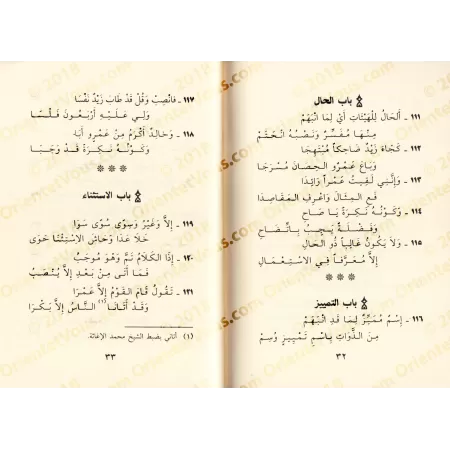 باب الحال
١١١ ـ اَلحَالُ لِلْهَيْئَاتِ أَيْ لِمَا انْبَهَمْ
مِنْهَا مُفَسِّرٌ وَنَصْبُهُ انْحَتَمْ
١١٢ ـ كَجَاءَ زَيْدٌ ضَاحِكاً مُبْتَهِجَا
وَبَاعَ عَمْرٌو الحِصَانَ مُسْرَجَا
١١٣ ـ وَإِنَّنِي لَقِيتُ عَمْراً رَائِدَا
فَعِ المِثَالَ وَاعْرِفِ المَقَاصِدَا
١١٤ ـ وَكَوْنُهُ نَكِرَةً يَا صَاحِ
وَفَضْلَةً يَجِبُ بِاتِّضَاحِ
١١٥ ـ وَلَا يَكُونُ غَالِباً ذُو الحَالِ
إِلَّا مُعَرَّفاً فِي الاسْتِعْمَالِ
باب التمييز
١١٦ ـ إِسْمٌ مُمَيِّزٌ لِمَا قَدِ انْبَهَمْ
مِنَ الذَّوَاتِ بِاسْمِ تَمْيِيزٍ وُسِمْ
٣٢
١١٧ ـ فَانْصِبْ وَقُلْ قَدْ طَابَ زَيْدٌ نَفْسَا
وَلِي عَلَيْهِ أَرْبَعُونَ فَلْسَا
١١٨ ـ وَخَالِدٌ أَكْرَمُ مِنْ عَمْرٍو أَبَا
وَكَوْنُهُ نَكِرَةً قَدْ وَجَبَا
باب الاستثناء
١١٩ ـ إِلَّا وَغَيْرُ وَسِوًى سُوًى سَوَا
خَلَا عَدَا وَحَاشَ الاسْتِثْنَا حَوَى
١٢٠ ـ إِذَا الكَلَامُ تَمَّ وَهْوَ مُوجَبُ
فَمَا أَتَى مِنْ بَعْدِ إِلَّا يُنْصَبُ
١٢١ ـ تَقُولُ قَامَ القَوْمُ إِلَّا عَمْرَا
وَقَدْ أَتَانَا (١) النَّاسُ إِلَّا بَكْرَا
(١) أتاني بضبط الشيخ محمد الإغاثة.
٣٣
© 2018